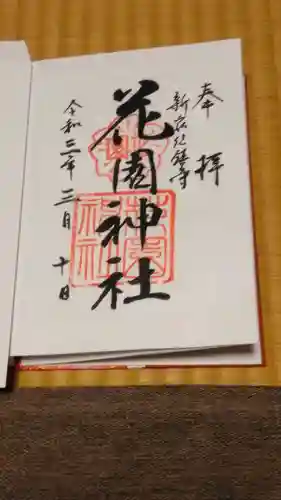 奉拝
新宿総鎮守
花園神社
令和二年三月十日
花園神社